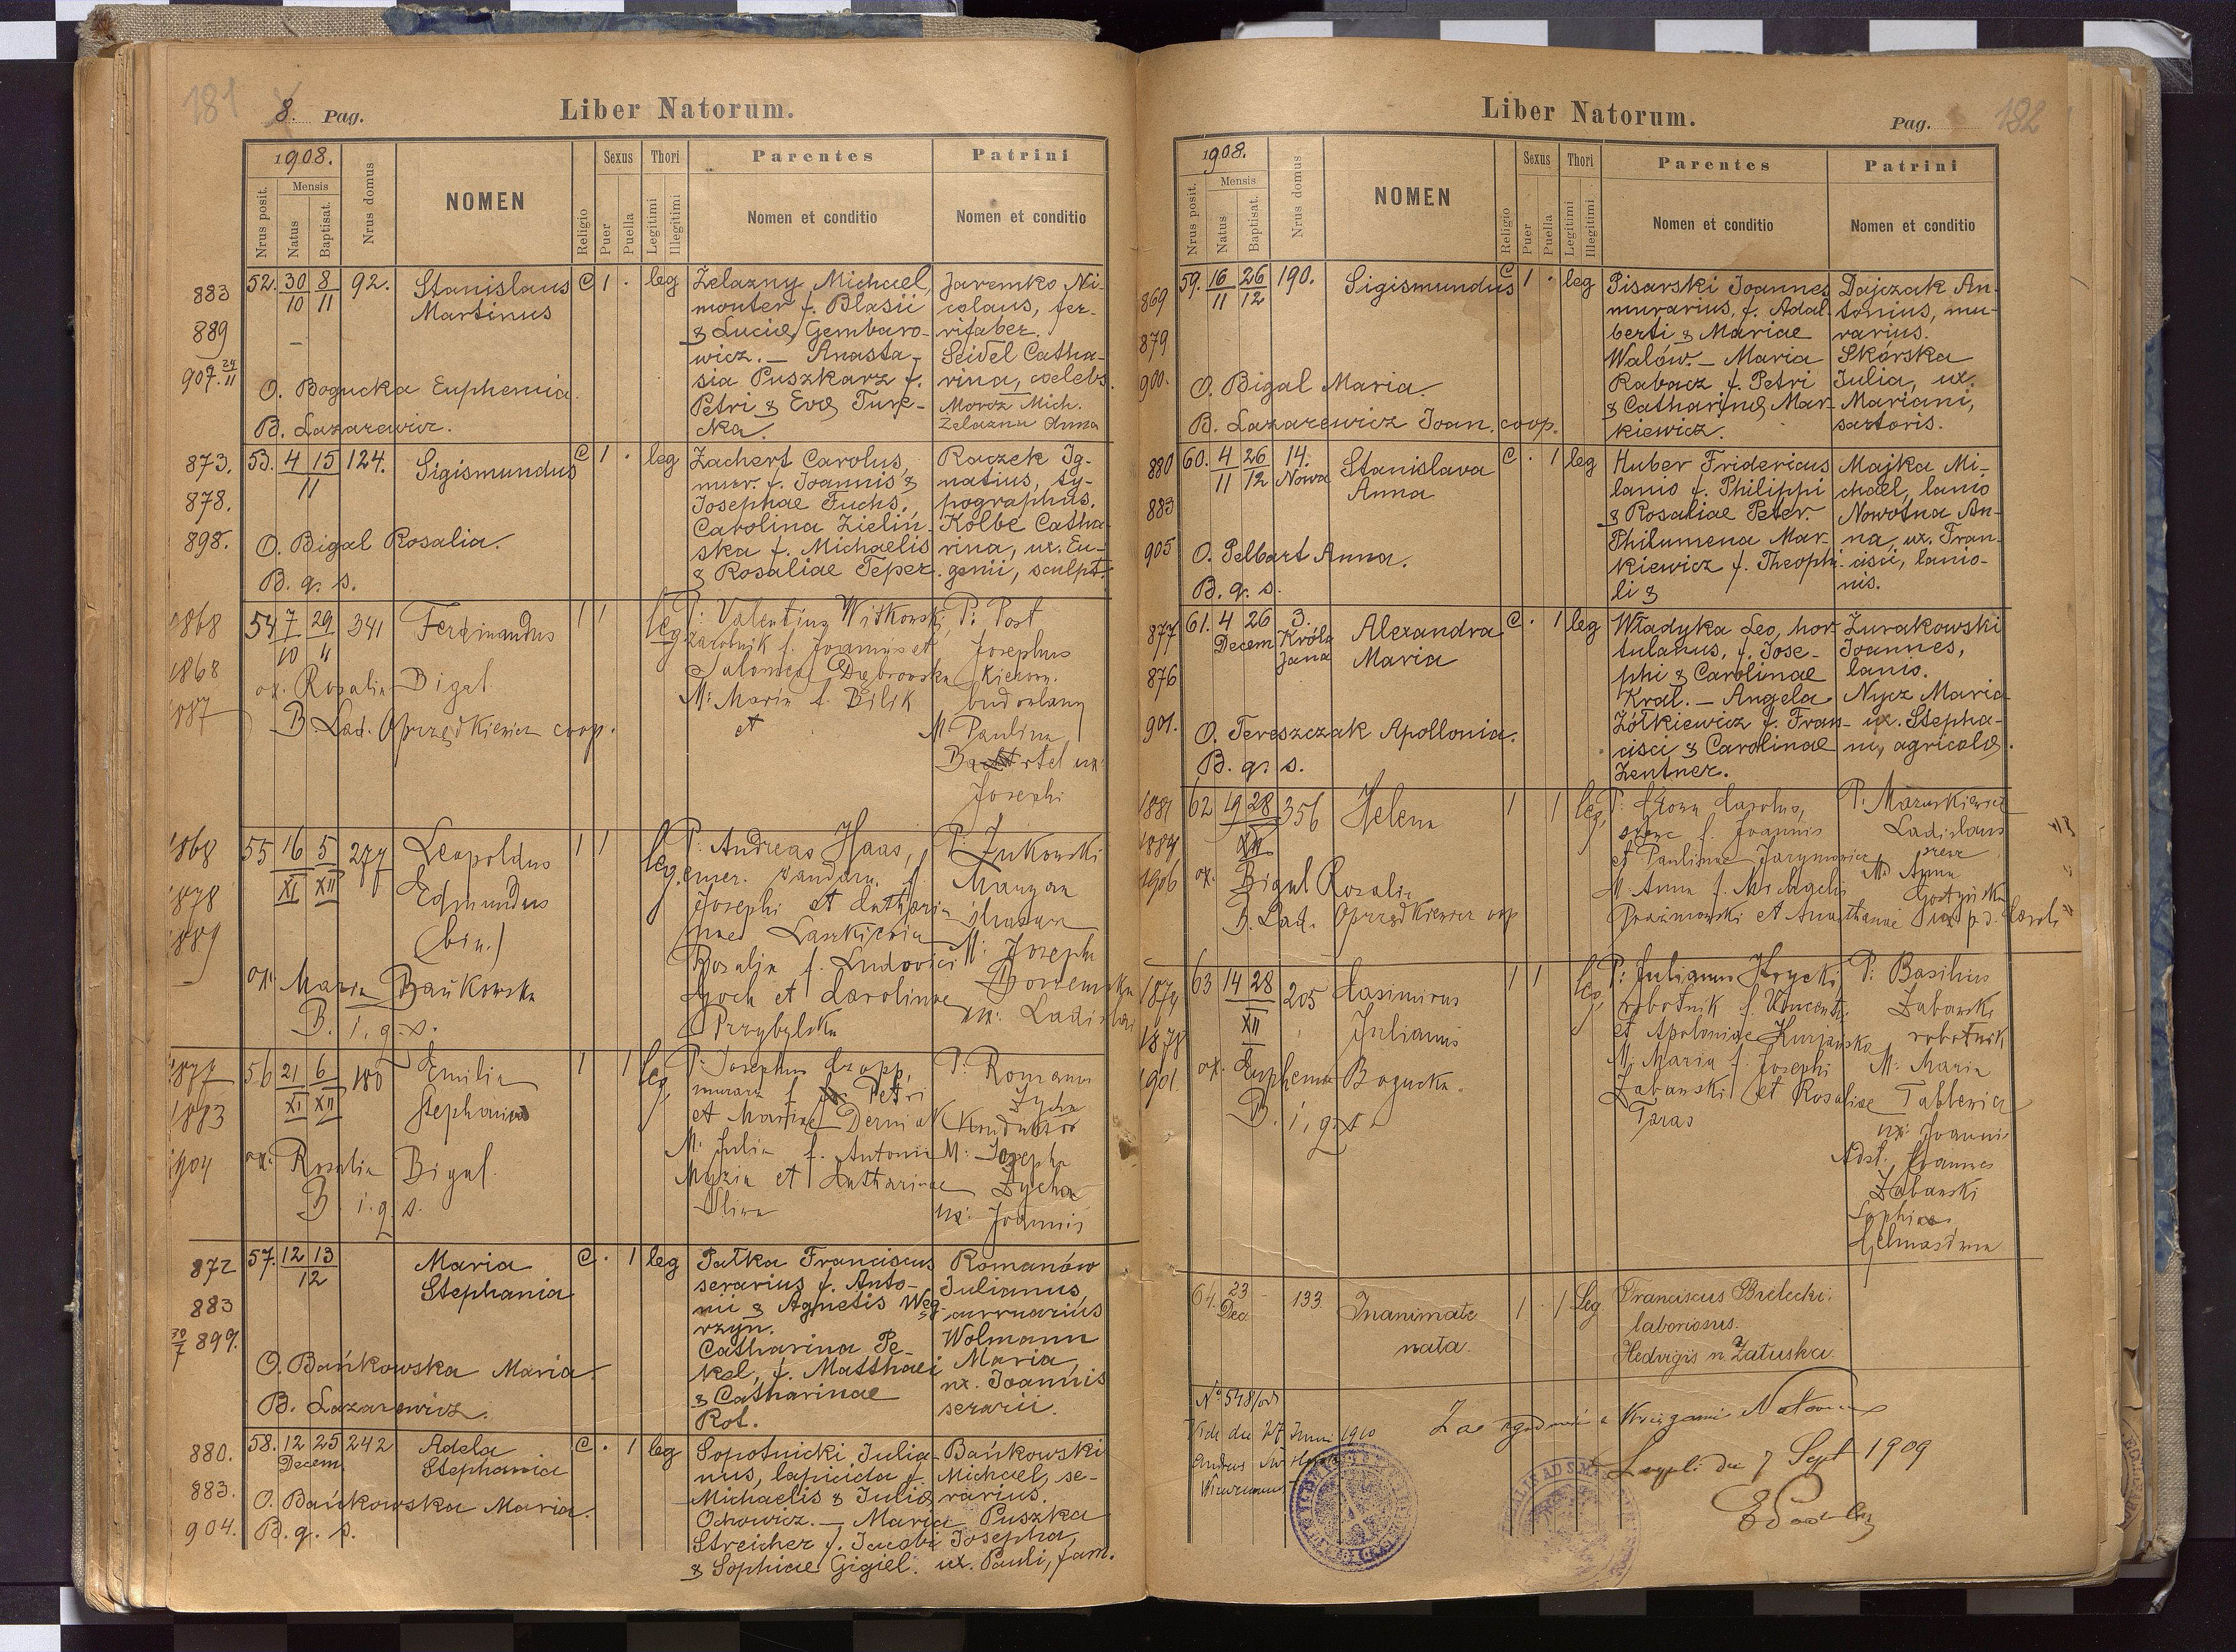 181
8. Pag.
Liber Natorum.
1908.
Nrus posit.
Mensis
Natus
Baptisat.
Nrus domus
NOMEN
Religio
Sexus
Puer
Puella
Thori
Legitimi
Illegitimi
Parentes
Nomen et conditio
Patrini
Nomen et conditio
883
889
907. 24/11
52. 30/10 8/11 92. Stanislaus C 1 . leg
Martinus
O. Bogucka Euphemia.
B. Lazarewicz.
Żelazny Michael,
monter f. Blasii
& Luciae Gembaro-
wicz. — Anasta-
sia Puszkarz f.
Petri & Evae Turec-
cka.
Jaremko Ni-
colaus, fer-
rifaber.
Seidel Catha-
rina, coelebs.
Morcz Mich.
Żelazna Anna
873.
878.
898.
53. 4 15 11 124. Sigismundus C 1 . leg
O. Bigal Rosalia.
B. q. s.
Zachert Carolus,
mur. f. Joannis &
Josephae Fuchs.
Carolina Zielin-
ska f. Michaelis
& Rosaliae Teper.
Raczek Ig-
natius, ty-
pographus.
Kolbe Catha-
rina, ux. Eu-
genii, sculpt.
1868
1868
1887
54 7/10 29/11 341 Ferdinandus 1 1 leg
ox. Rosalia Bigal
B. Lad. Oprządkiewicz coop.
P: Valentinus Witkowski,
zarobnik f. Joannis et
Salomea Dąbrowska
M: Maria f. Bilik
et
P: Post
Josephus
kierow.
budowlany
M Paulina
Bartel ux:
Josephi
1868
1878
1889
55 16/XI 5/XII 277 Leopoldus 1 1 leg.
Edmundus
(bin.)
ox: Maria Bańkowska
B. i. q. s.
P: Andreas Haas,
emer. żandarm f.
Josephi et Cathari-
nae Laszkiewicz
Rosalia f. Ludovici
Hoch et Carolinae
Przybylska
P: Żukowski
Maryan
M: Josepha
ux: Ladislai
1877
1883
1904
56 21/XI 6/XII 180 Emilia 1 1 leg,
Stephania
ox: Rosalia Bigal.
B. i. q. s.
P: Josephus Czopp,
murarz f. Petri
et Mariae Derniak
M: Julia f. Antonii
Myzia et Catharinae
Sliwa
P: Romanus
Zycha
Konduktor
M: Josepha
Zycha
ux: Joannis
872
883
30/7 899.
57. 12 13 12 Maria C . 1 leg
Stephania
O. Bańkowska Maria.
B. Lazarewicz.
Pałka Franciscus
serarius f. Anto-
nii & Agnetis Węg-
rzyn.
Catharina Pe-
kel, f. Matthaei
& Catharinae
Rot.
Romanów
Julianus,
aurruarius
Wolmann
Maria,
ux. Joannis
serarii.
880.
883.
904.
58. 12 25 Decem. 242 Adela C . 1 leg
Stephania
O. Bańkowska Maria.
B. q. s.
Sopotnicki Julia-
nus, lapicida f.
Michaelis & Juliae
Ochowicz. — Maria
Streicher f. Jacobi
& Sophiae Gigiel.
Bańkowski
Michael, se-
rarius.
Puszka
Josepha,
ux. Pauli, fam.
Liber Natorum.
Pag. 182
1908.
Nrus posit.
Mensis
Natus
Baptisat.
Nrus domus
NOMEN
Religio
Sexus
Puer
Puella
Thori
Legitimi
Illegitimi
Parentes
Nomen et conditio
Patrini
Nomen et conditio
869
879
900.
59. 16/11 26/12 190. Sigismundus C 1 . leg
O. Bigal Maria.
B. Lazarewicz Joan. coop.
Pisarski Joannes
murarius, f. Adal-
berti & Mariae
Walów. — Maria
Rabacz f. Petri
& Catharinae Mar-
kiewicz.
Dajczak An-
tonius, mu-
rarius.
Skórska
Julia, ux.
Mariani,
sartoris.
880
883
905
60. 4/11 26/12 14. Nowa Stanislava C . 1 leg
Anna
O. Pelbart Anna.
B. q. s.
Huber Fridericus
lanio f. Philippi
& Rosaliae Peter.
Philumena Mar-
kiewicz f. Theophi-
li &
Majka Mi-
chael, lanio
Nowotna An-
na, ux. Fran-
cisci, lanio-
nis.
877
876
901.
61. 4 26 Decem 3. Króla Jana Alexandra C . 1 leg
Maria
O. Tereszczak Apollonia.
B. q. s.
Władyka Leo, hor-
tulanus, f. Jose-
phi & Carolinae
Kral. — Angela
Żółkiewicz f. Fran-
cisci & Carolinae
Zentner.
Żurakowski
Joannes,
lanio.
Nycz Maria
ux. Stepha-
ni, agricolae.
1881
1884
1906
62 19 28 XII 356 Helena 1 1 leg,
ox. Bigal Rosalia
B. Lad. Oprządkiewicz coop
Carolus,
f. Joannis
et Paulinae Jarymowicz
M. Anna f. Michaelis
P: Mazurkiewicz
Ladislaus
M: Anna
1874
1878
1901
63 14 28 XII 205 Casimirus 1 1 leg,
Julianus
ox. Euphemia Bogucka.
B. i. q. s.
P: Julianus Hrycki,
robotnik f. Vincenti
et Apoloniae Kurjanska
M: Maria f. Josephi
Zabanski et Rosaliae
Taras
P: Basilius
Zabanski
robotnik
M: Maria
ux: Joannis
Adst. Joannes
Zabanski
Sophia
64. 23 Dec - 133. Inanimate 1 . 1 Leg.
nata.
Franciscus Bielecki.
laboriosus.
Hedvigis n. Załuska.
No 548/
Vide die 27 Junii 1910
Za zgodność z Księgami Natorum
Leopoli die 7 Sept 1909